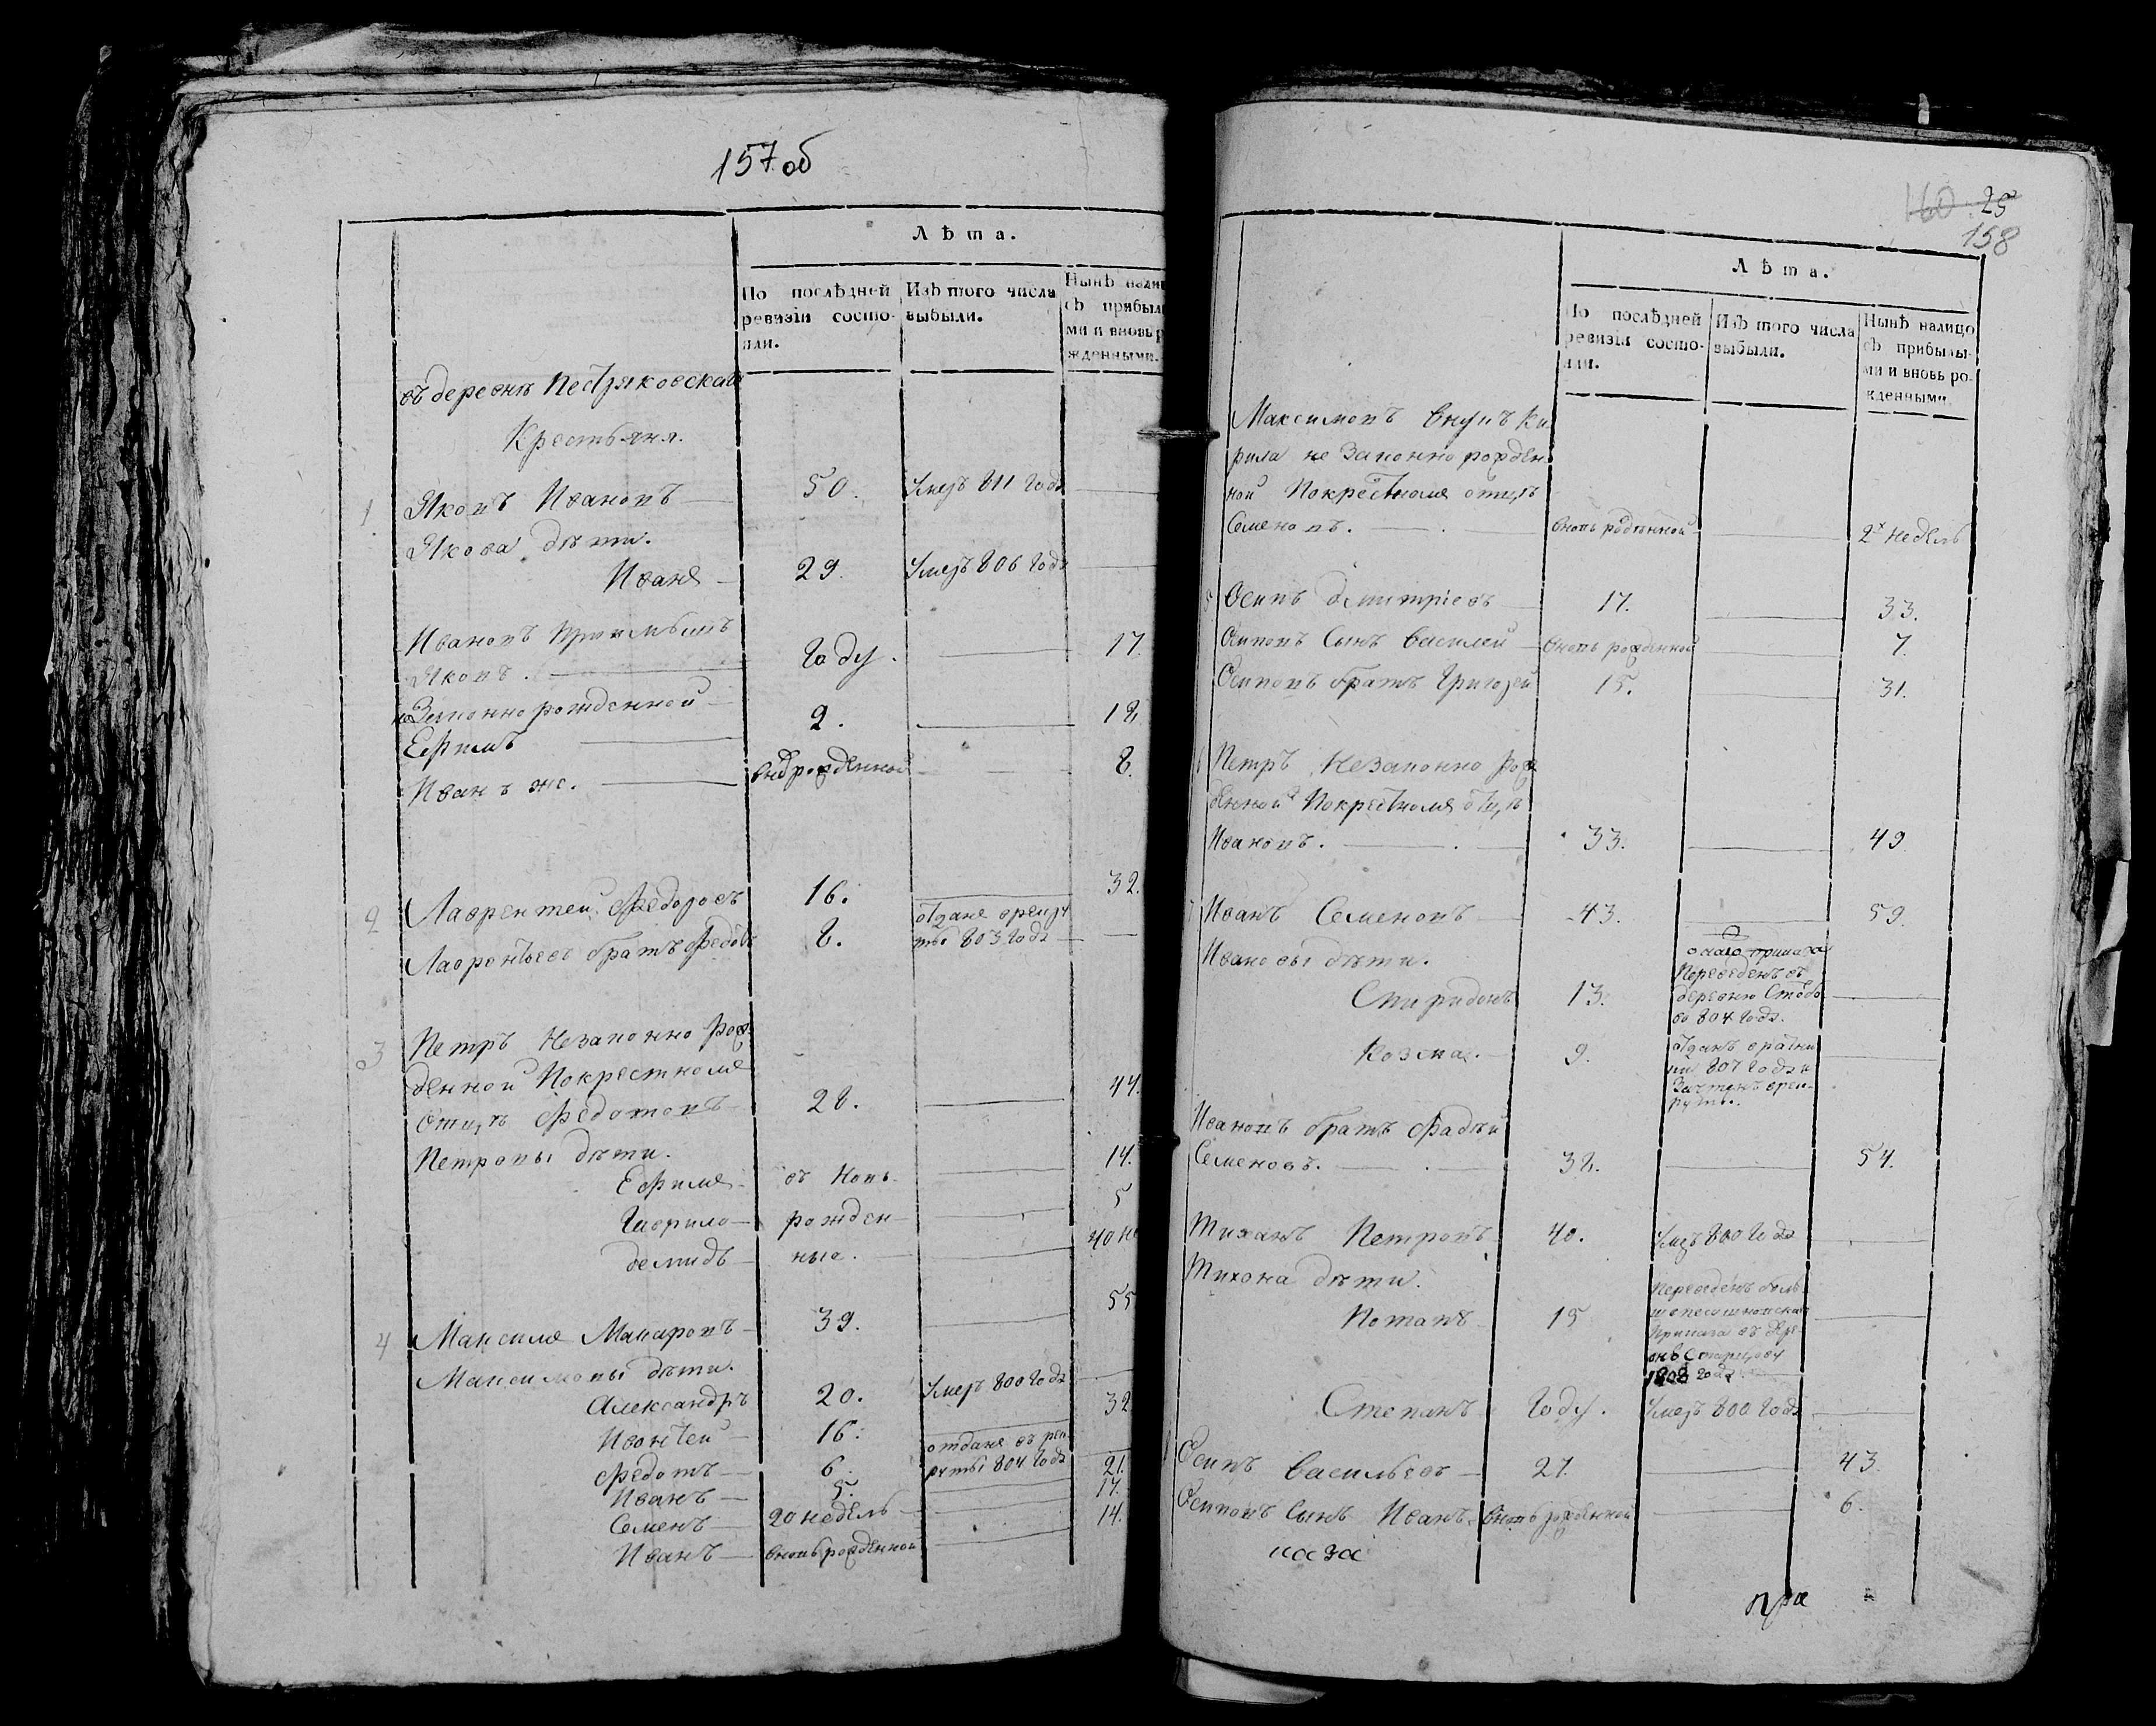 157 об
Лѣта.
По послѣдней
ревизіи состо-
яли.
Изъ того числа
выбыли.
Нынѣ нали
съ прибылы
ми и вновь р
жденными.
въ деревнѣ
Крестьяня.
1 Яковъ Ивановъ 50. Умеръ 811 года
Якова дѣти.
Иванъ 29. Умеръ 806 года
Ивановъ
Яковъ. Году. 17
Незаконнорожденной
Ефимъ 2. 18
Иванъ же. вновьрожденной 8.
2 Лаврентей Федоровъ 16. 32.
Лаврентьевъ братъ Федотъ 8. отданъ врекру
ты 803 года
3 Петръ незаконно рож
денной покрестноме
отцѣ Федотовъ 28. 44.
Петровы дѣти.
Ефимъ въ новь 14.
Гаврило рожден 5
Демидъ ные. 40 не
4 Максимъ Макаровъ 39. 55
Максимовы дѣти.
Александръ 20. Умеръ 800 года
16. 32
Федотъ 6. отданъ въ рек
руты 804 года
Иванъ 5. 21.
Семенъ 20 недель 17.
Иванъ вновьрожденной 14.
160 25
158
Лѣта.
По послѣдней
ревизіи состо-
яли.
Изъ того числа
выбыли.
Нынѣ налицо
съ прибылы-
ми и вновь ро-
жденными.
Максимовъ внукъ Ки
рила не законно рожден
ной покрестноме отцѣ
Семеновъ. вновь рожденной 2х недель
5 Осипъ Дмитріевъ 17. 33.
Осиповъ сынъ Василей вновь рожденной 7.
Осиповъ братъ Григорей 15. 31.
6 Петръ незаконно рож
денной покрестноме отцѣ
Ивановъ. 33. 49.
7 Иванъ Семеновъ 43. 59.
Ивановы дѣти.
Спиридонъ 13. Переведенъ въ
деревню
во 804 года.
Козма. 9. отданъ вратни
ки 807 года и
зачтенъ врек-
руты.
Ивановъ братъ Фадѣй
Семеновъ. 38. 54.
Тиханъ Петровъ 40. Умеръ 800 года
Тихона дѣти.
Потапъ 15 Переведенъ
1808 года
Степанъ Году. Умеръ 800 года
8 Осипъ Васильевъ 27. 43.
Осиповъ сынъ Иванъ вновь рожденной 6.
каза